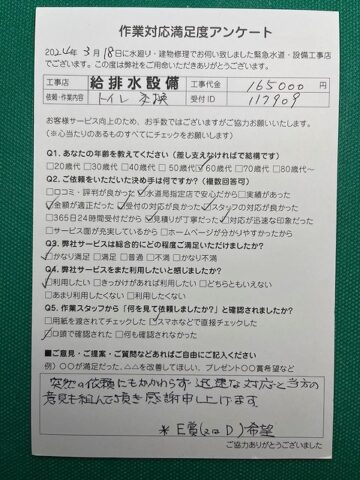 作業対応満足度アンケート
2024年3月18日に水廻り・建物修理でお伺い致しました緊急水道・設備工事店
でございます。この度は弊社をご用命いただきありがとうございます。
工事店 給排水設備 工事代金 165000 円
依頼・作業内容 トイレ交換 受付ID 117909
お客様サービス向上のため、お手数ではございますがご協力お願いいたします。
(※心当たりのあるものすべてにチェックをお願いします)
Q1. あなたの年齢を教えてください(差し支えなければで結構です)
□20歳代 □30歳代 □40歳代 □50歳代 ☑60歳代 □70歳代 □80歳代〜
Q2. ご依頼をいただいた決め手は何ですか?(複数回答可)
□口コミ・評判が良かった ☑水道局指定店で安心だから □実績があった
☑金額が適正だった ☑受付の対応が良かった ☑スタッフの対応が良かった
□365日24時間受付だから ☑見積りが丁寧だった ☑対応が迅速な印象だった
□サービス面が充実しているから □ホームページが分かりやすかったから
Q3. 弊社サービスは総合的にどの程度ご満足いただけましたか?
☑かなり満足 □満足 □普通 □不満 □かなり不満
Q4. 弊社サービスをまた利用したいと感じましたか?
☑利用したい □きっかけがあれば利用したい □どちらともいえない
□あまり利用したくない □利用したくない
Q5. 作業スタッフから「何を見て依頼しましたか?」と確認されましたか?
□用紙を渡されてチェックした □スマホなどで直接チェックした
☑口頭で確認された □何も確認されなかった
■ご意見・ご提案・ご質問などあればご自由にご記入ください
例)○○が満足だった、△△を改善してほしい、プレゼント○○賞希望など
突然の依頼にもかかわらず迅速な対応と当方の
意見も組んで頂き感謝申し上げます
※E賞(又はD)希望
ご協力ありがとうございました